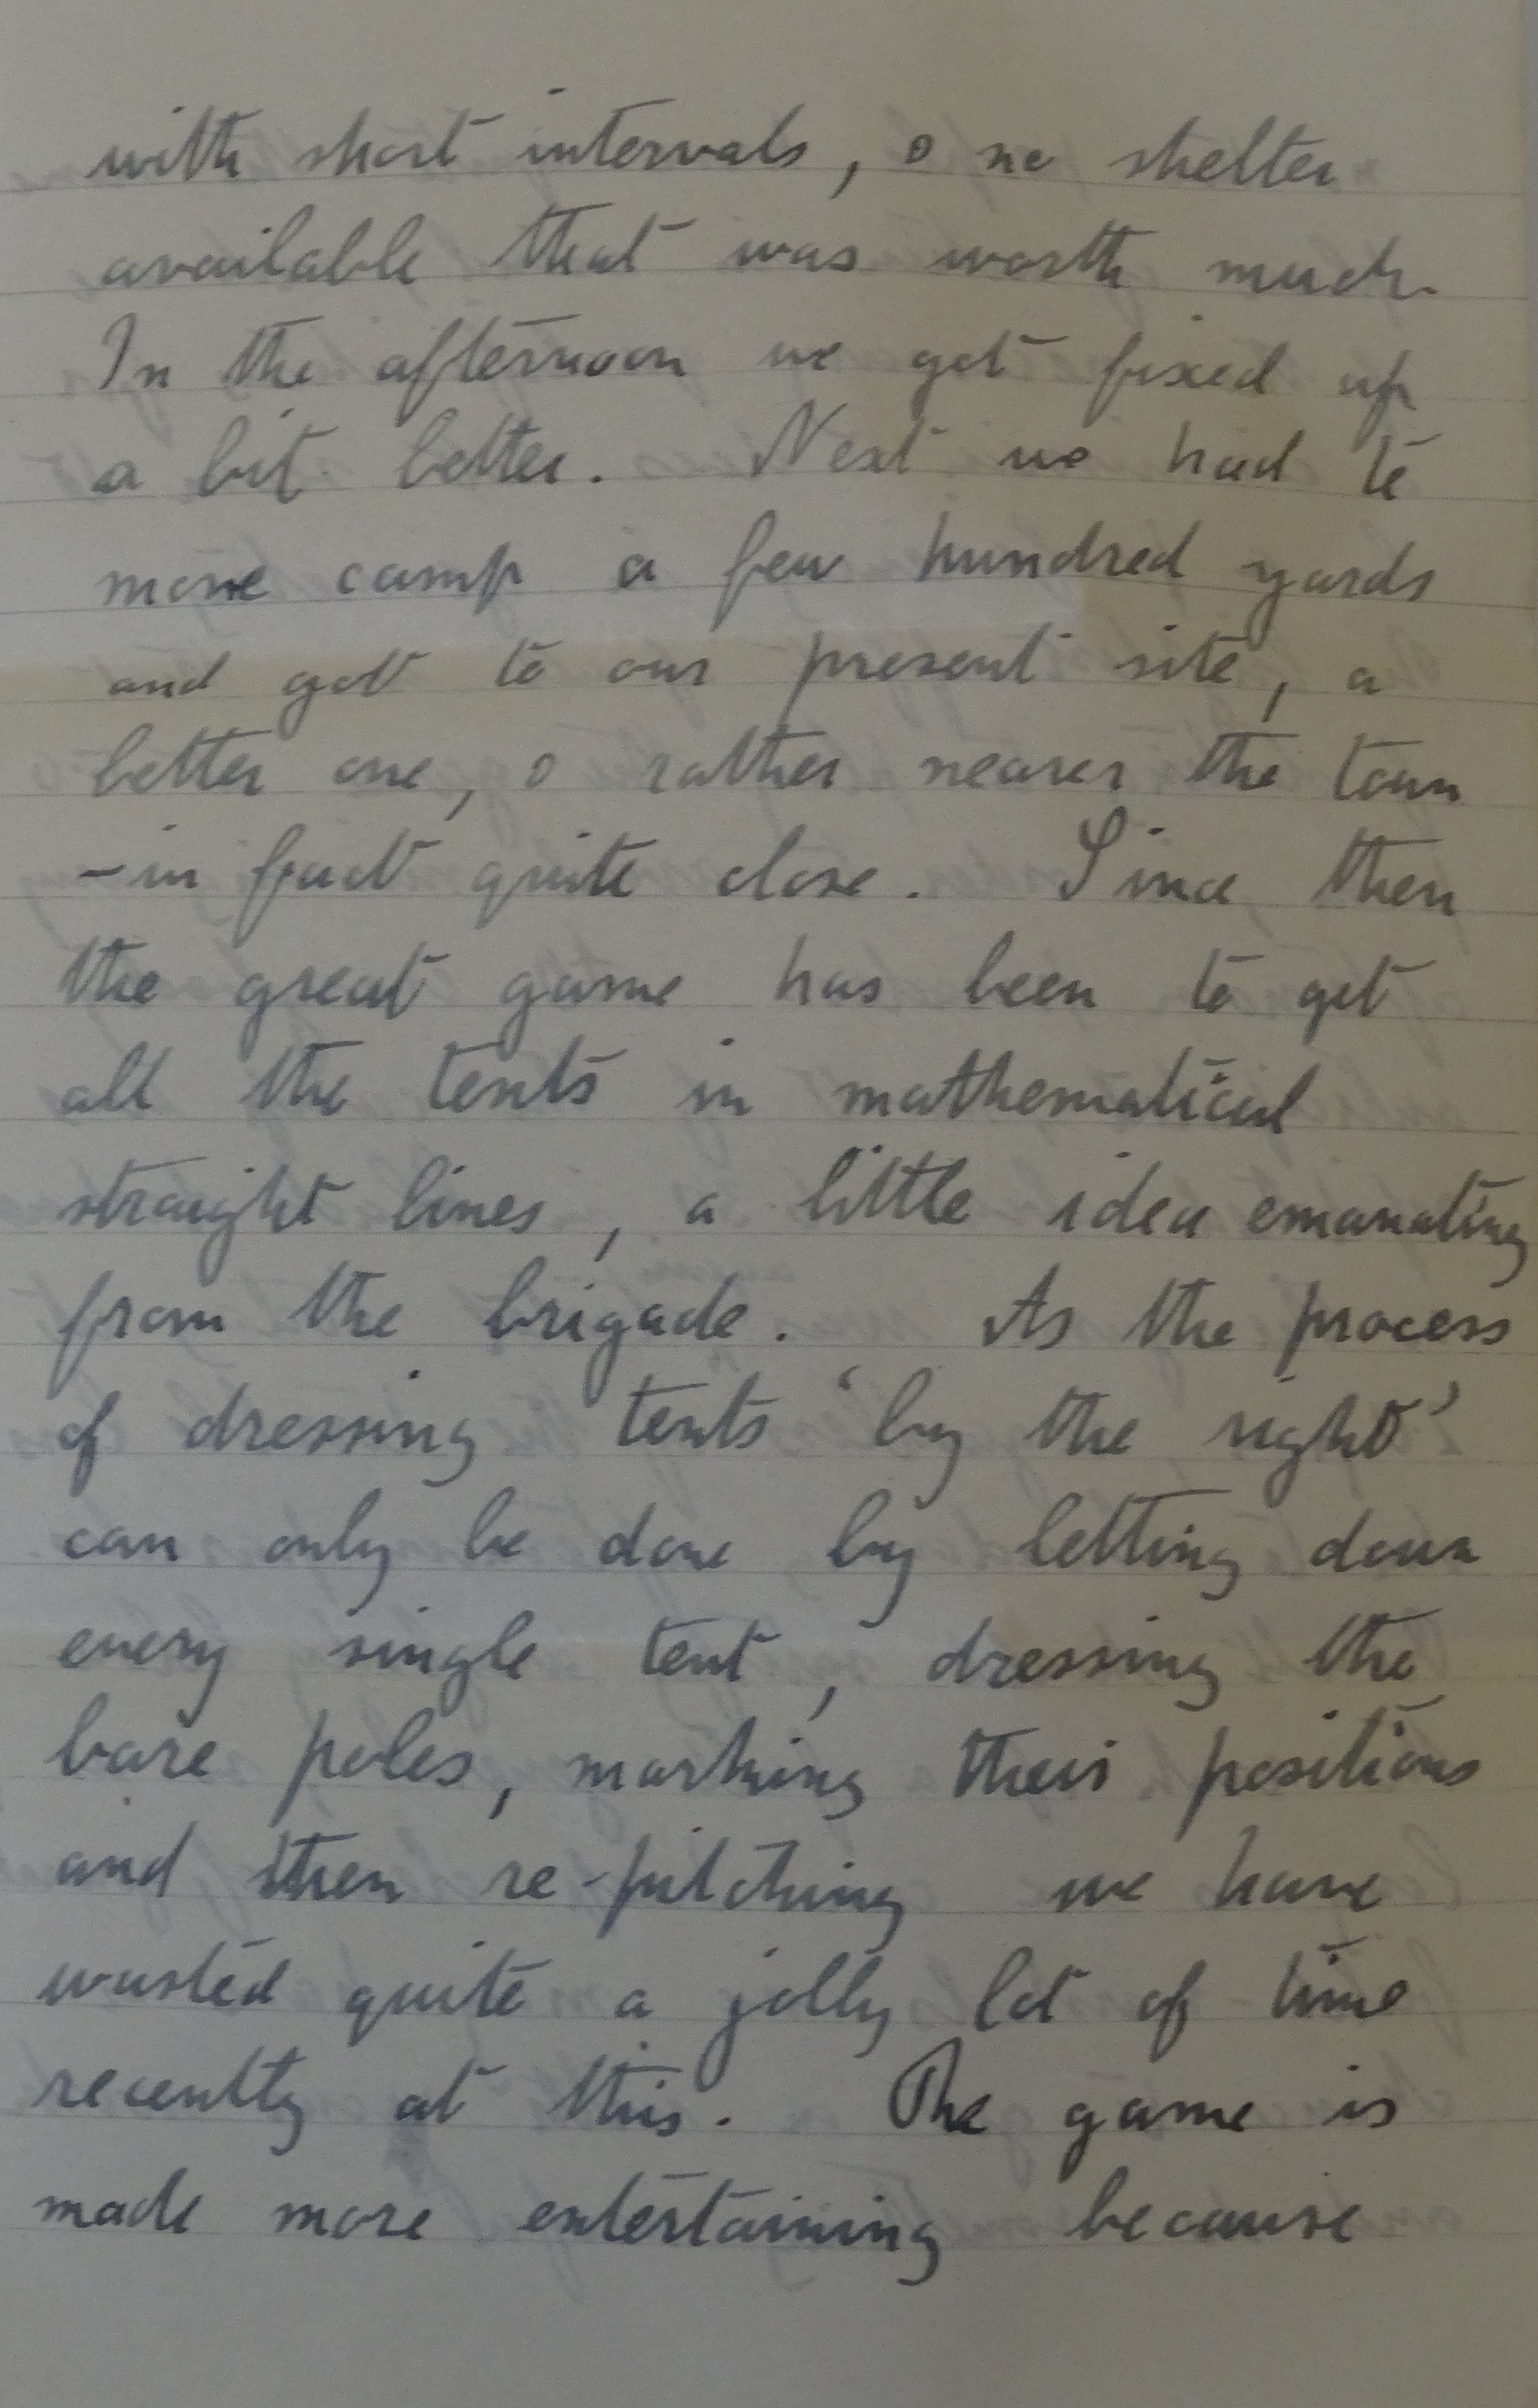 with short intervals, & no shelter
available that was worth much.
In the afternoon we got fixed up
a bit better. Next we had to
move camp a few hundred yards
and got to our present site, a
better one, & rather nearer the town
- in fact quite close. Since then
the great game has been to get
all the tents in mathematical
straight lines, a little idea emanating
from the brigade. As the process
of dressing tents 'by the right'
can only be done by letting down
every single tent, dressing the
bare poles, marking their positions
and then re-pitching we have
wasted quite a jolly lot of time
recently at this. The game is
made more entertaining because